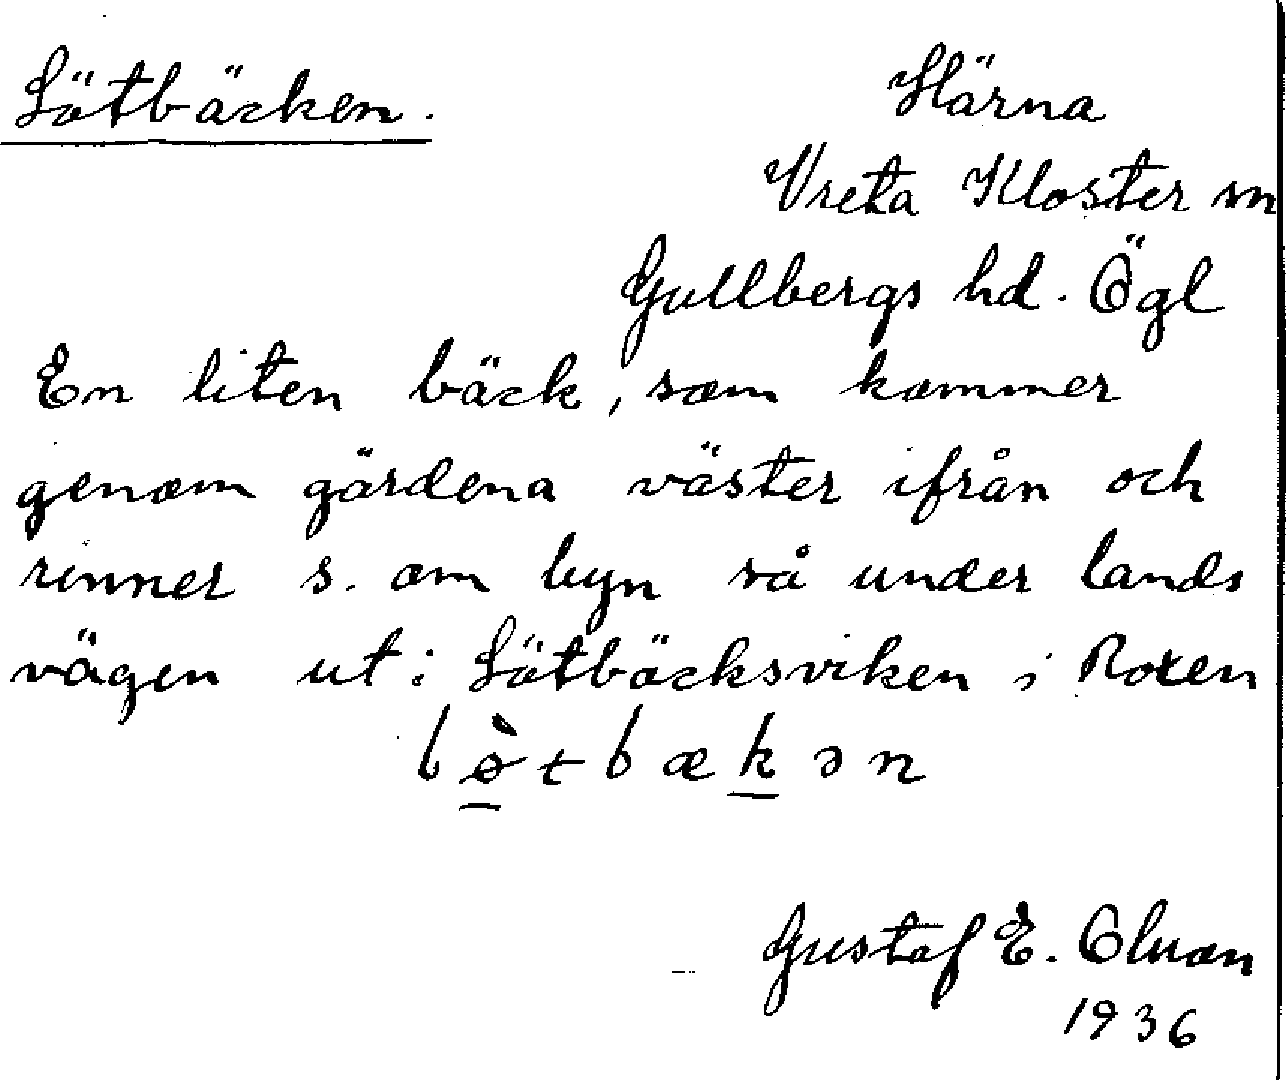 Lötbäcken.
Härna
Vreta Kloster sn
Gullbergs hd. Ögl
En liten bäck, som kommer
genom gärdena väster ifrån och
rinner s. om byn så under lands
vägen ut i Lötbäcksviken i Roxen
lø̠̀tbæḵən
Gustaf E. Olsson
1936